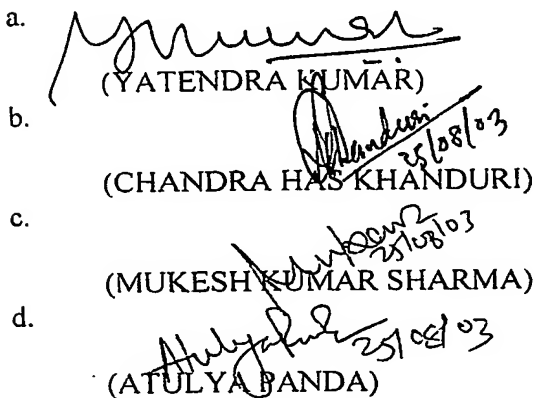 a.
(YATENDRA KUMAR)
b.
Khanduri
25/08/03
(CHANDRA HAS KHANDURI)
c.
25/08/03
(MUKESH KUMAR SHARMA)
d.
25/08/03
(ATULYA PANDA)